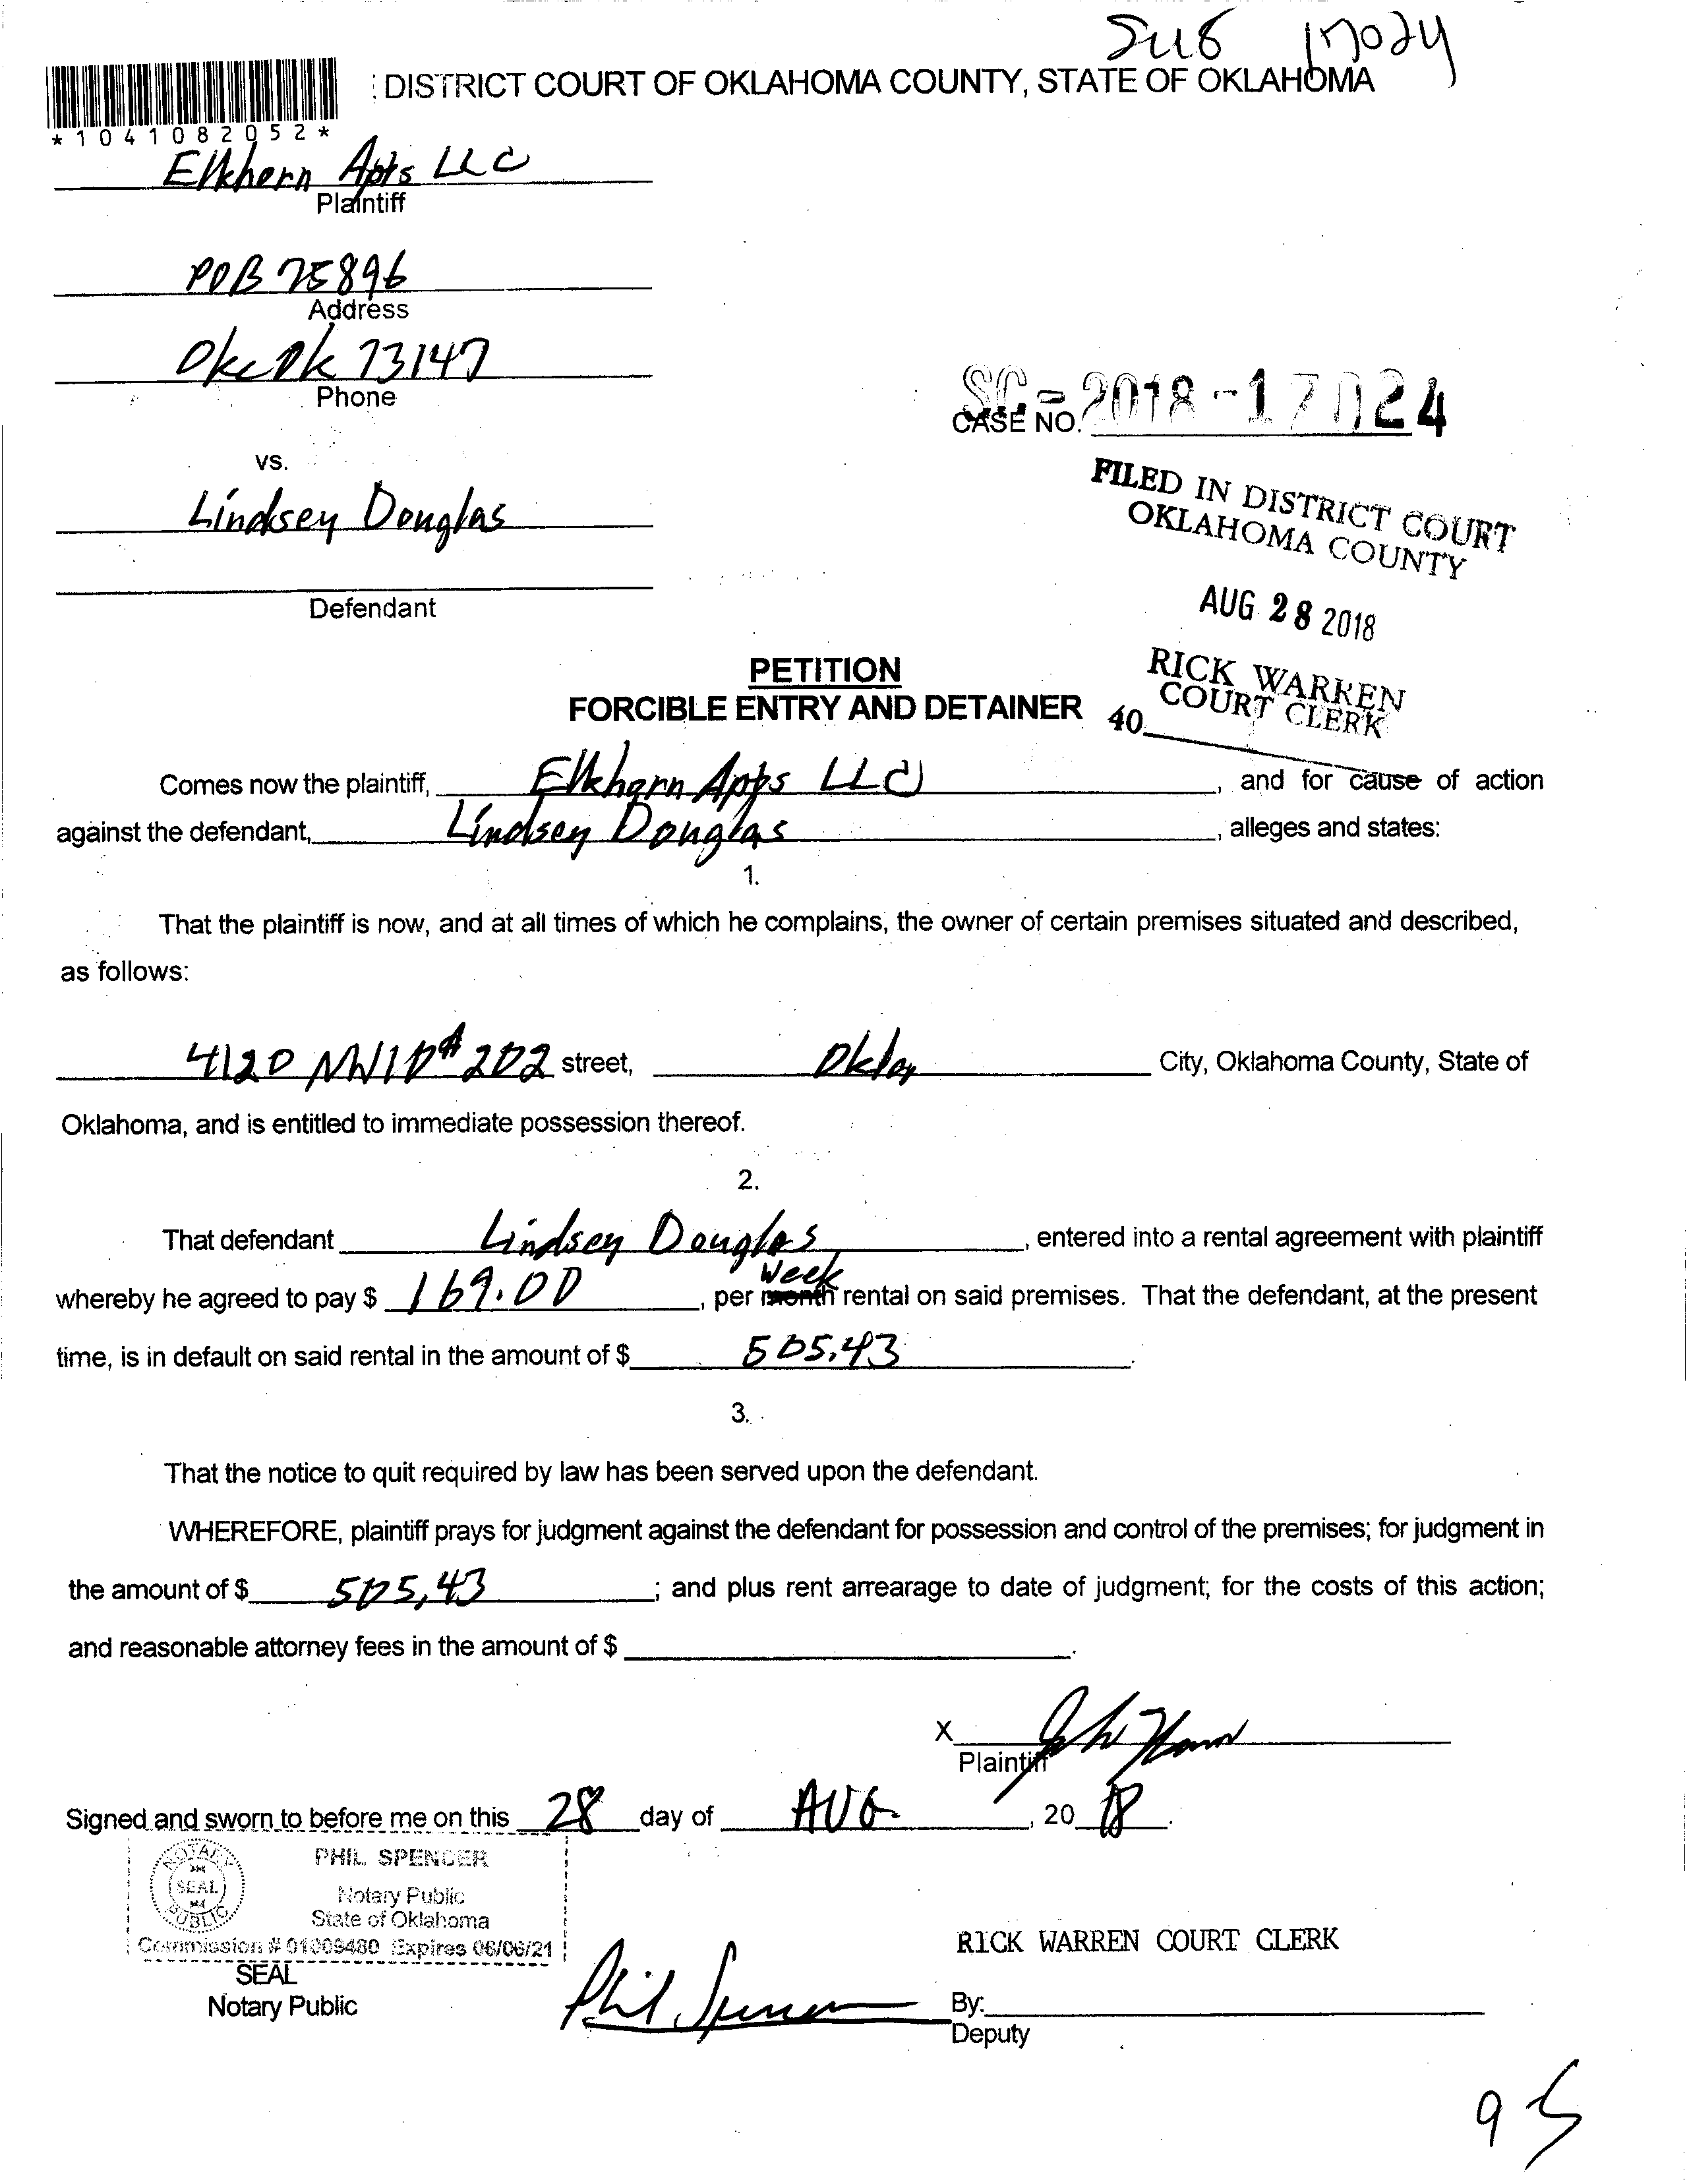 Sub 17024
: DISTRICT COURT OF OKLAHOMA COUNTY, STATE OF OKLAHOMA
*1041082052*
Elkhorn Apts LLC
Plaintiff
POB 75896
Address
Okc Ok 73147
Phone
SC-2018-17024
CASE NO.
vs.
FILED IN DISTRICT COURT
OKLAHOMA COUNTY
Lindsey Douglas
AUG 28 2018
Defendant
RICK WARREN
COURT CLERK
40
PETITION
FORCIBLE ENTRY AND DETAINER
Comes now the plaintiff, Elkhorn Apts LLC, and for cause of action
against the defendant, Lindsey Douglas, alleges and states:
1.
That the plaintiff is now, and at all times of which he complains, the owner of certain premises situated and described,
as follows:
4120 NW10 #202 street, Okla City, Oklahoma County, State of
Oklahoma, and is entitled to immediate possession thereof.
2.
That defendant Lindsey Douglas, entered into a rental agreement with plaintiff
Week
whereby he agreed to pay $ 169.00, per month rental on said premises. That the defendant, at the present
time, is in default on said rental in the amount of $ 505.43.
3.
That the notice to quit required by law has been served upon the defendant.
WHEREFORE, plaintiff prays for judgment against the defendant for possession and control of the premises; for judgment in
the amount of $ 505,43; and plus rent arrearage to date of judgment; for the costs of this action;
and reasonable attorney fees in the amount of $ .
X
Plaintiff
Signed and sworn to before me on this 28 day of AUG., 20 18.
NOTARY PUBLIC SEAL
PHIL SPENCER
Notary Public
State of Oklahoma
Commission # 01009480 Expires 06/06/21
SEAL
Notary Public
Phil Spencer
RICK WARREN COURT CLERK
By:
Deputy
95